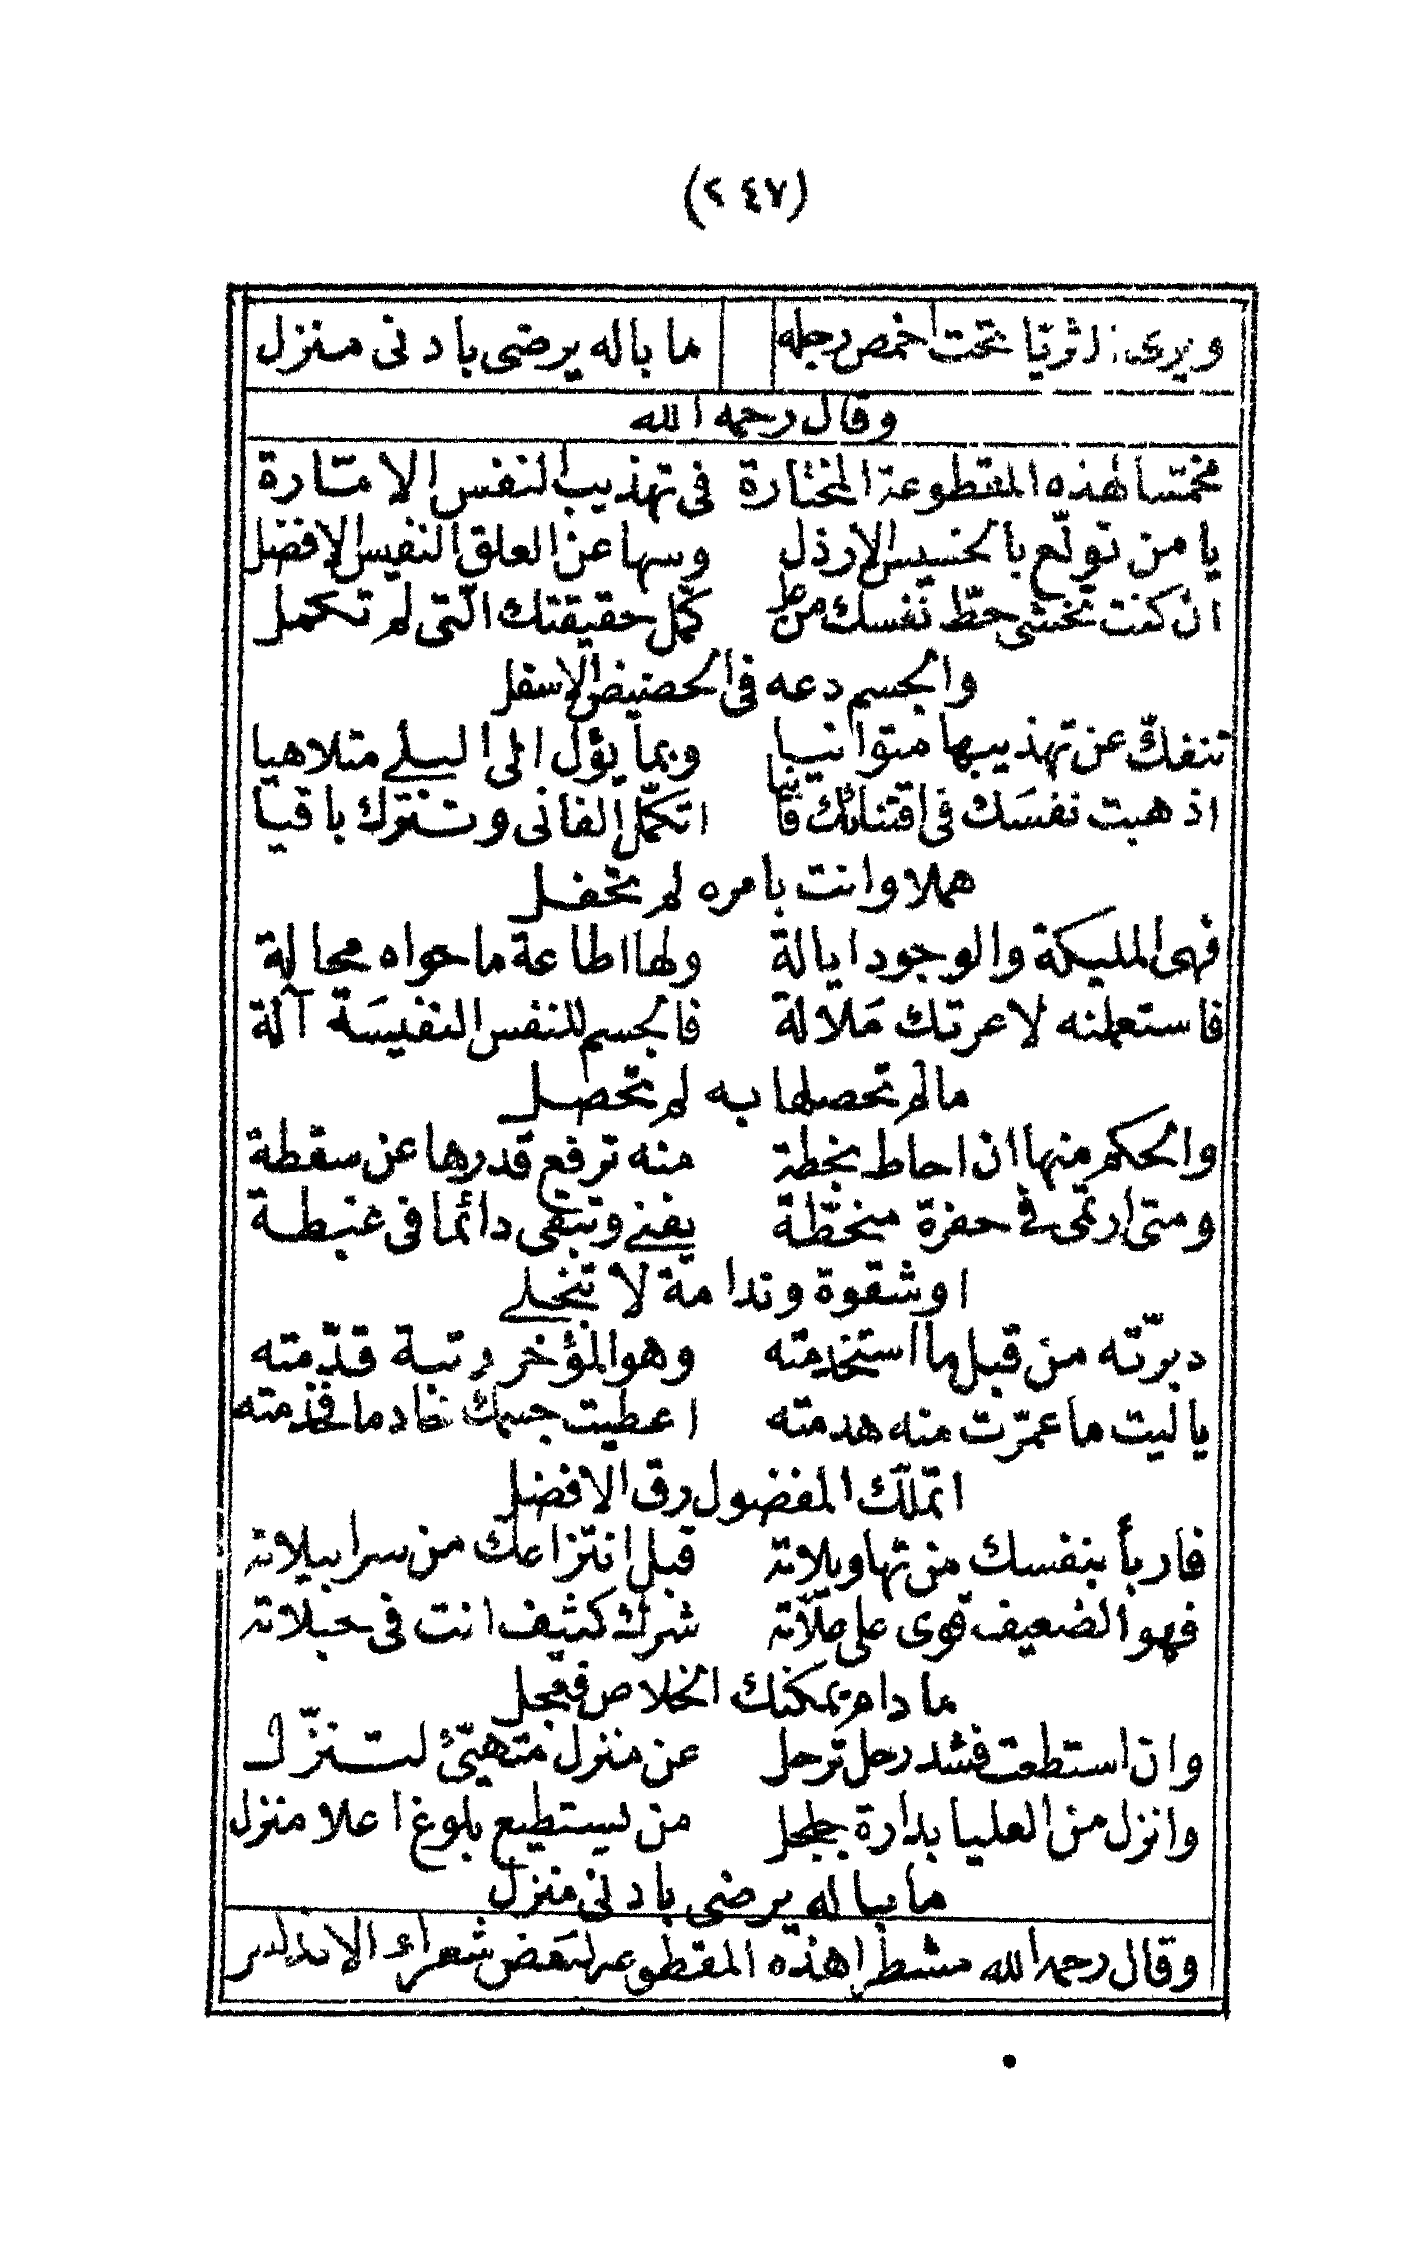 (٢٤٧)
ويرى الثريّا تحت اخمص رجله ما باله يرضى بادنى منزل
وقال رحمه الله
مخمّسا لهذه المقطوعة المختارة فى تهذيب النفس الامّارة
يا من تولّع بالخسيس الارذل وسها عن العلق النفيس الافضل
ان كنت تخشى حطّ نفسك من عل كمّل حقيقتك الّتى لم تكمل
والجسم دعه فى الحضيض الاسفل
تنفكّ عن تهذيبها متوانيا وبما يؤل الى البلى متلاهيا
اذهبت نفسك فى اقتنائك فانيا اتكمّل الفانى وتترك باقيا
هملا وانت بامره لم تحفل
فهى المليكة والوجود ايالة ولها اطاعة ما حواه محالة
فاستعملنه لا عرتك ملالة فالجسم للنفس النفيسة آلة
ما لم تحصلها به لم تحصل
والحكم منها ان احاط بخطة منه ترفع قدرها عن سقطة
ومتى ارتمى فى حفرة منحطّة يفنى وتبقى دائما فى غبطة
او شقوة وندامة لا تنجلى
دبرّته من قبل ما استخدمته وهو المؤخر رتبة قدّمته
يا ليت ما عمرّت منه هدمته اعطيت جسمك خادما فخدمته
اتملّك المفضول رق الافضل
فاربأ بنفسك من تهاويلاته قبل انتزاعك من سرابيلاته
فهو الضعيف قوى على علّاته شرك كثيف انت فى حبلاته
ما دام يمكنك الخلاص فعجل
وان استطعت فشد رحل ترحل عن منزل متهيّئ لتنزّل
وانزل من العليا بدارة جلجل من يستطيع بلوغ اعلا منزل
ما باله يرضى بادنى منزل
وقال رحمه الله مشطرا هذه المقطوعه لبعض شعراء الاندلس